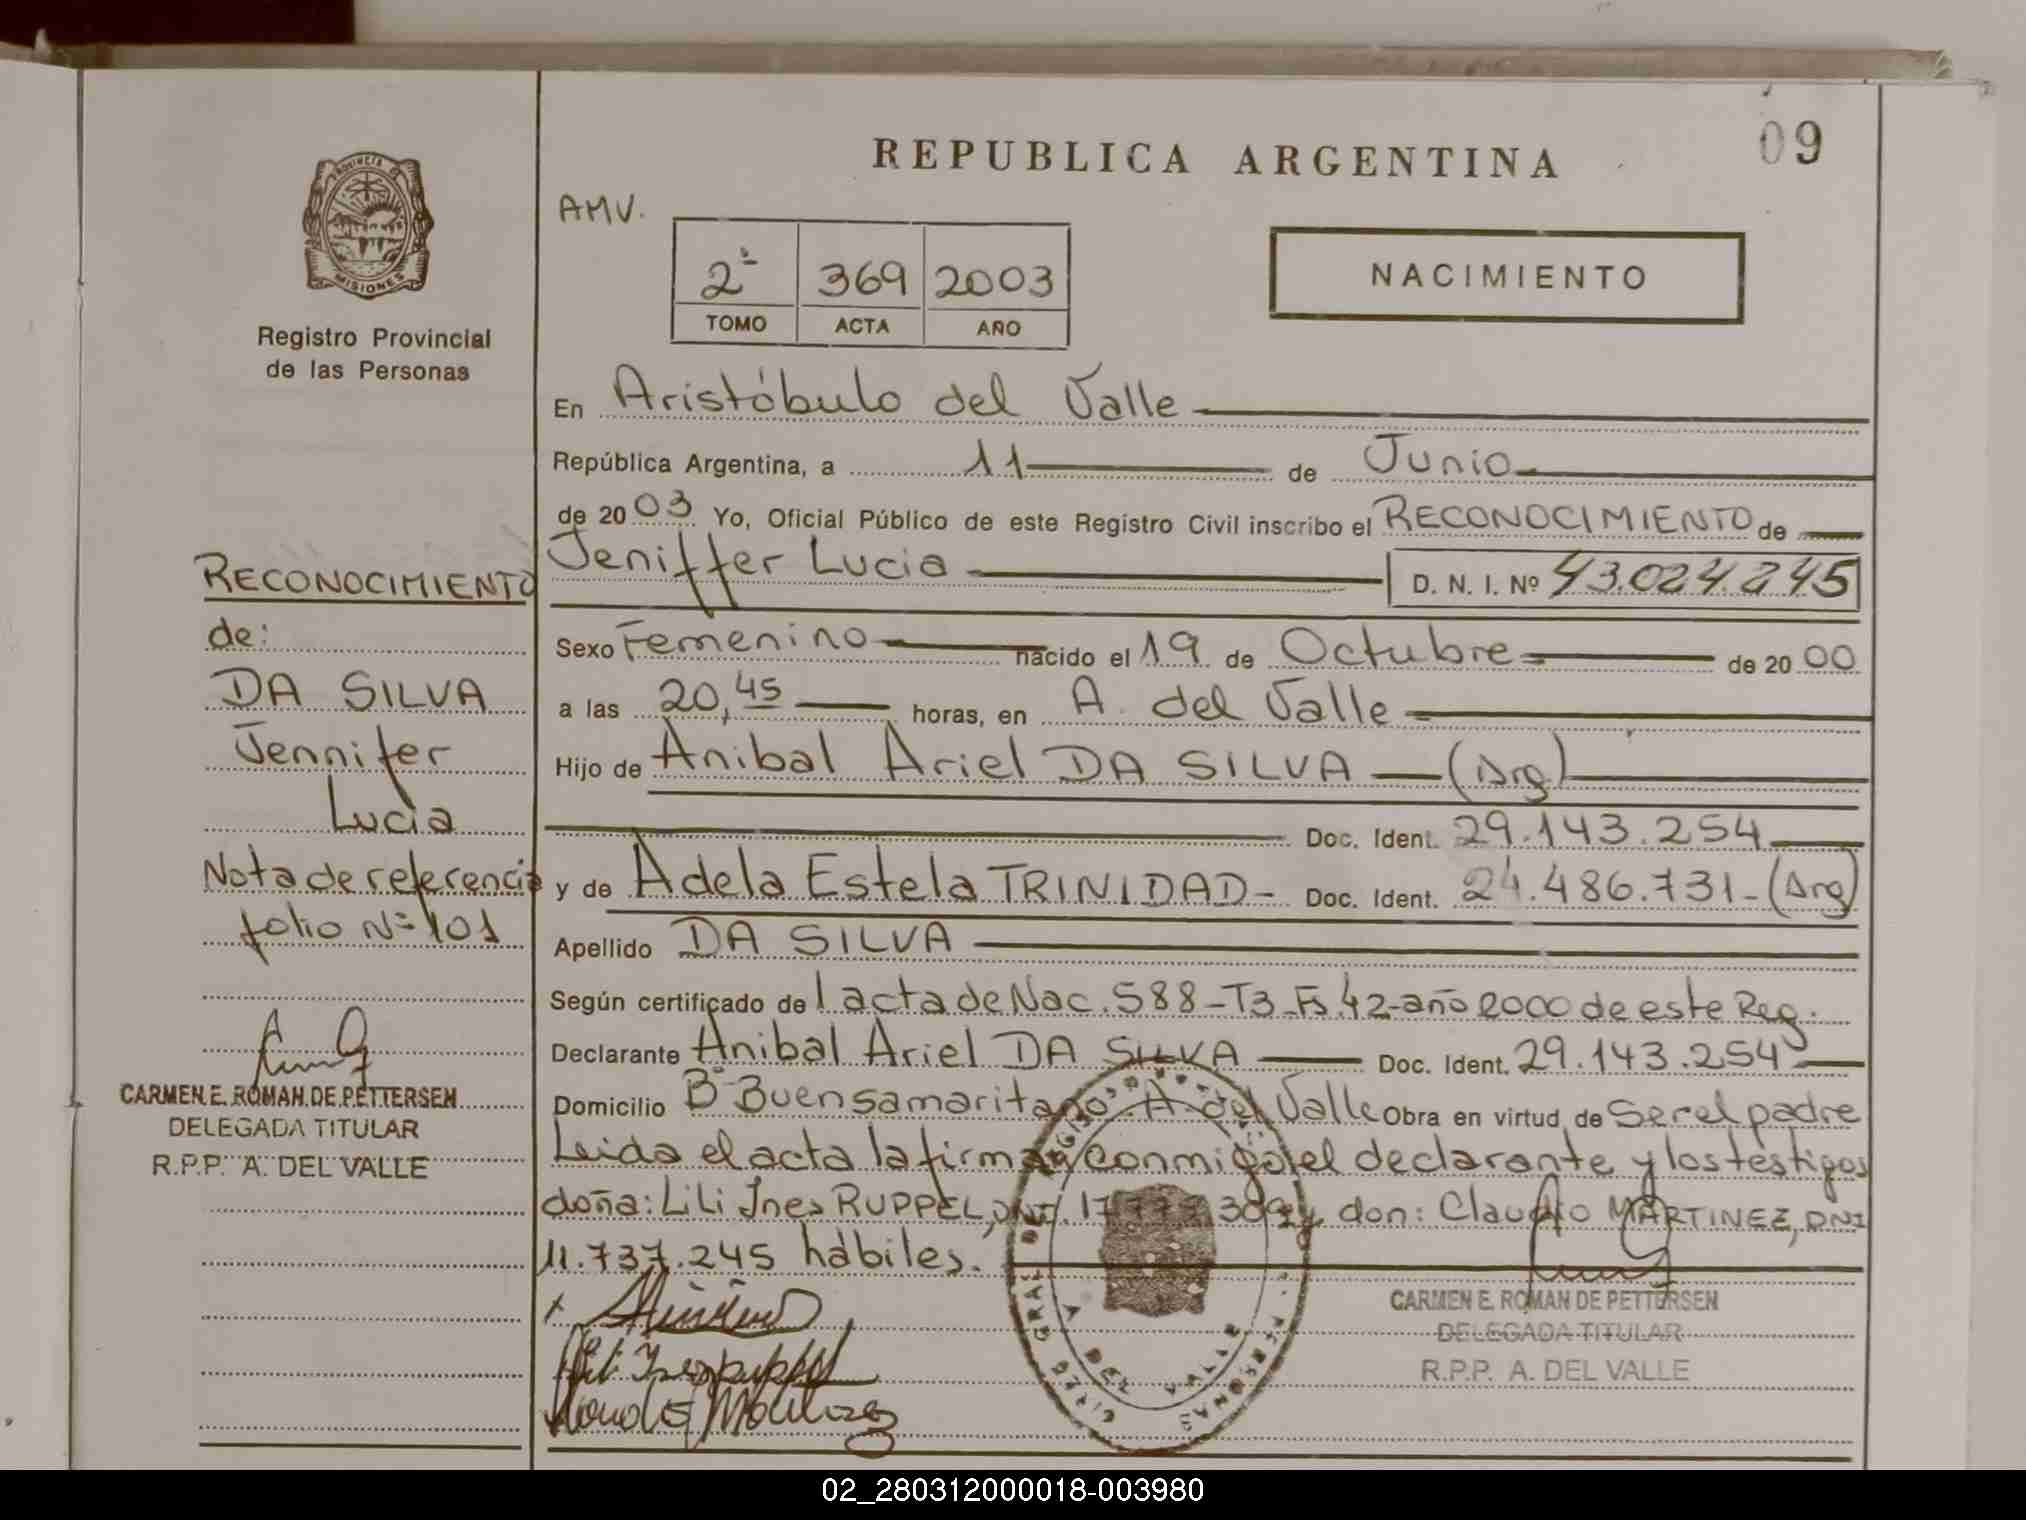 09
REPUBLICA ARGENTINA
AMV.
2º 369 2003
TOMO ACTA AÑO
NACIMIENTO
PROVINCIA DE
MISIONES
Registro Provincial
de las Personas
En Aristóbulo del Valle
República Argentina, a 11 de Junio
de 2003 Yo, Oficial Público de este Registro Civil inscribo el RECONOCIMIENTO de
Jeniffer Lucia D. N. I. Nº 43.024.245
Sexo Femenino nacido el 19 de Octubre de 2000
a las 20,45 horas, en A. del Valle
Hijo de Anibal Ariel DA SILVA (Arg)
Doc. Ident. 29.143.254
y de Adela Estela TRINIDAD- Doc. Ident. 24.486.731-(Arg)
Apellido DA SILVA
Según certificado de 1 acta de Nac. 588-T3-Fs.42-año 2000 de este Reg.
Declarante Anibal Ariel DA SILVA Doc. Ident. 29.143.254
Domicilio Bº Buen samaritano A. del Valle Obra en virtud de Ser el padre
Leida el acta la firman conmigo el declarante y los testigos
doña: Lili Ines RUPPEL, DNI. y don: Claudio MARTINEZ, DNI
11.737.245 hábiles.
CARMEN E. ROMAN DE PETTERSEN
DELEGADA TITULAR
R.P.P. A. DEL VALLE
A DEL VALLE
RECONOCIMIENTO
de:
DA SILVA
Jennifer
Lucia
Nota de referencia
folio Nº 101
CARMEN E. ROMAN DE PETTERSEN
DELEGADA TITULAR
R.P.P. A. DEL VALLE
02_280312000018-003980